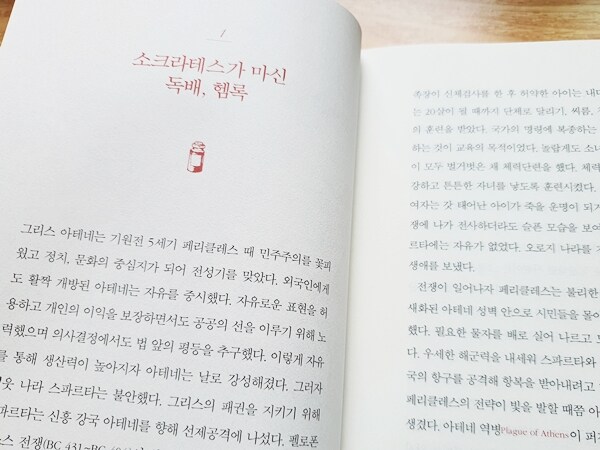 1
소크라테스가 마신
독배, 헴록
그리스 아테네는 기원전 5세기 페리클레스 때 민주주의를 꽃피
웠고 정치, 문화의 중심지가 되어 전성기를 맞았다. 외국인에게
도 활짝 개방된 아테네는 자유를 중시했다. 자유로운 표현을 허
용하고 개인의 이익을 보장하면서도 공공의 선을 이루기 위해 노
력했으며 의사결정에서도 법 앞의 평등을 추구했다. 이렇게 자유
를 통해 생산력이 높아지자 아테네는 날로 강성해졌다. 그러자
웃 나라 스파르타는 불안했다. 그리스의 패권을 지키기 위해
파르타는 신흥 강국 아테네를 향해 선제공격에 나섰다. 펠로폰
스 전쟁(BC 431~BC
족장이 신체검사를 한 후 허약한 아이는 내다
는 20살이 될 때까지 단체로 달리기, 씨름,
의 훈련을 받았다. 국가의 명령에 복종하는
하는 것이 교육의 목적이었다. 놀랍게도 소녀
이 모두 벌거벗은 채 체력단련을 했다. 체력
강하고 튼튼한 자녀를 낳도록 훈련시켰다.
여자는 갓 태어난 아이가 죽을 운명이 되거
쟁에 나가 전사하더라도 슬픈 모습을 보여
르타에는 자유가 없었다. 오로지 나라를
생애를 보냈다.
전쟁이 일어나자 페리클레스는 불리한
새화된 아테네 성벽 안으로 시민들을 몰아
했다. 필요한 물자를 배로 실어 나르고
다. 우세한 해군력을 내세워 스파르타와
국의 항구를 공격해 항복을 받아내려고
페리클레스의 전략이 빛을 발할 때쯤
생겼다. 아테네 역병Plague of Athens이 퍼